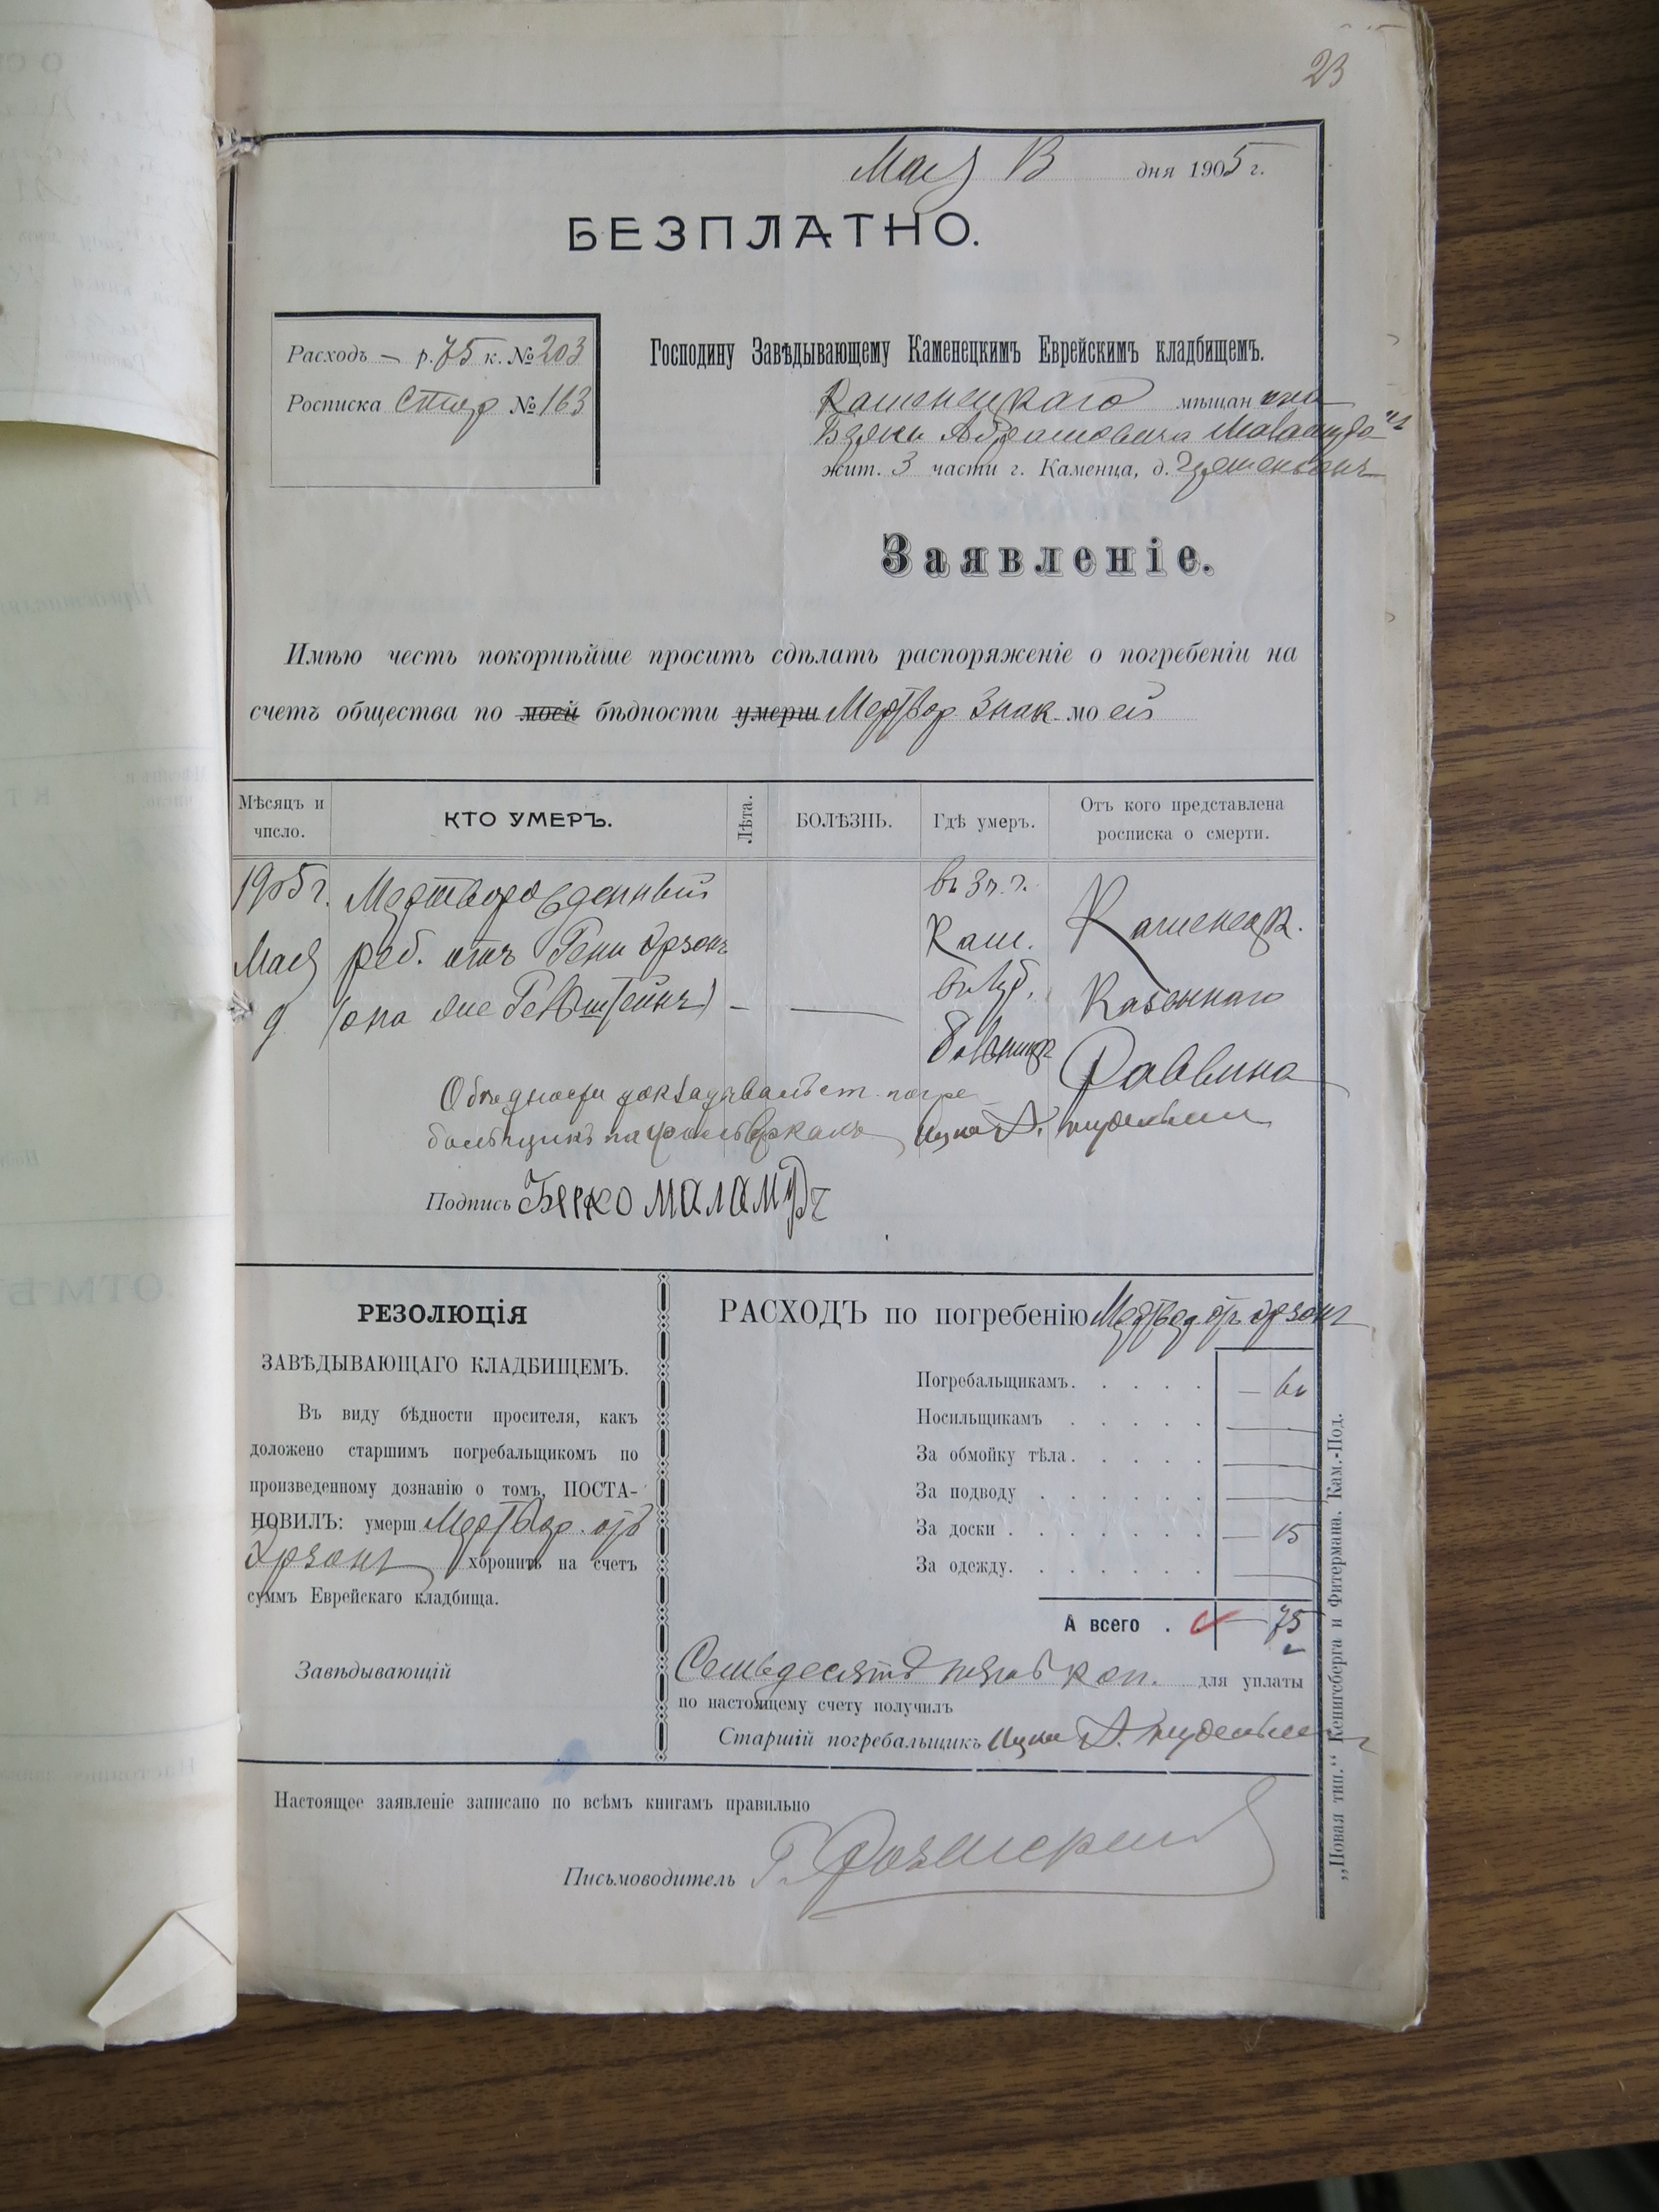 23
Мая В дня 1905 г.
БЕЗПЛАТНО.
Расходъ — р. 75 к. № 203
Росписка стар № 163
Господину Завѣдывающему Каменецкимъ Еврейскимъ кладбищемъ.
Каменецкаго мѣщанина
Абрамовича Маламуда
жит. 3 части г. Каменца, д.
Заявленіе.
Имѣю честь покорнѣйше просить сдѣлать распоряженіе о погребеніи на
счетъ общества по моей бѣдности умерш Мертвор Знак. моей
Мѣсяцъ и число.
КТО УМЕРЪ.
Лѣта.
БОЛѢЗНЬ.
Гдѣ умеръ.
Отъ кого представлена росписка о смерти.
1905 г. Мертворожденный въ 3 ч. г. Каменецк.
Мая реб. отъ Гени Эрзонъ Кам.
9 (она же) — — въ губ. Казеннаго
больницѣ Раввина
О бѣдности докладываетъ погре-
бальщикъ
Подпись Берко Маламудъ
РЕЗОЛЮЦІЯ
ЗАВѢДЫВАЮЩАГО КЛАДБИЩЕМЪ.
Въ виду бѣдности просителя, какъ
доложено старшимъ погребальщикомъ по
произведенному дознанію о томъ, ПОСТА-
НОВИЛЪ: умерш Мертвор. отъ
Эрзонъ хоронить на счетъ
суммъ Еврейскаго кладбища.
Завѣдывающій
РАСХОДЪ по погребенію Мертвор. отъ Эрзонъ
Погребальщикамъ. . . . . — 60
Носильщикамъ . . . . . —
За обмойку тѣла. . . . . —
За подводу . . . . . . —
За доски . . . . . . . — 15
За одежду. . . . . . . —
А всего . — 75
Семьдесятъ пять коп. для уплаты
по настоящему счету получилъ
Старшій погребальщикъ
Настоящее заявленіе записано по всѣмъ книгамъ правильно
Письмоводитель
„Новая тип.“ Кенигсберга и Фитермана. Кам.-Под.